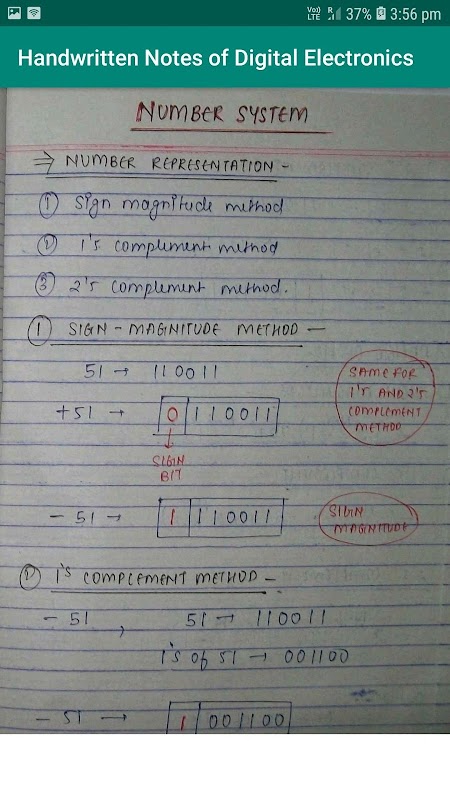 Voo) LTE R 37% 3:56 pm
Handwritten Notes of Digital Electronics
NUMBER SYSTEM
⇒ NUMBER REPRESENTATION -
① Sign magnitude method
② 1's complement method
③ 2's complement method.
① SIGN - MAGNITUDE METHOD -
51 → 110011
+51 → 0 110011
SAME FOR
1's AND 2's
COMPLEMENT
METHOD
SIGN
BIT
- 51 → 1 110011
SIGN
MAGNITUDE
② 1's COMPLEMENT METHOD -
- 51 , 51 → 110011
1's of 51 → 001100
- 51 → 1 001100